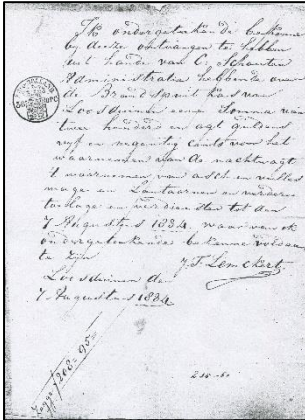 Ik ondergeteekende bekenne
by deeze ontvangen te hebben
uit hande van C. Schouten
Administratie hebbende over
de Brandspuit kas van
Loosduinen eene somma van
twee honderd en agt guldens
vyf en negentig cents voor het
waarneemen van de nachtwagt
't waarnemen van asch en vullis
en Lantaarnen en verdere
toelage en verdiensten tot den
7 Augustus 1884 waarvan ik
ondergeteekende bekenne voldaan
te zyn
J. F. Lemckert
Loosduinen den
7 Augustus 1884
Zegge f 208-95-